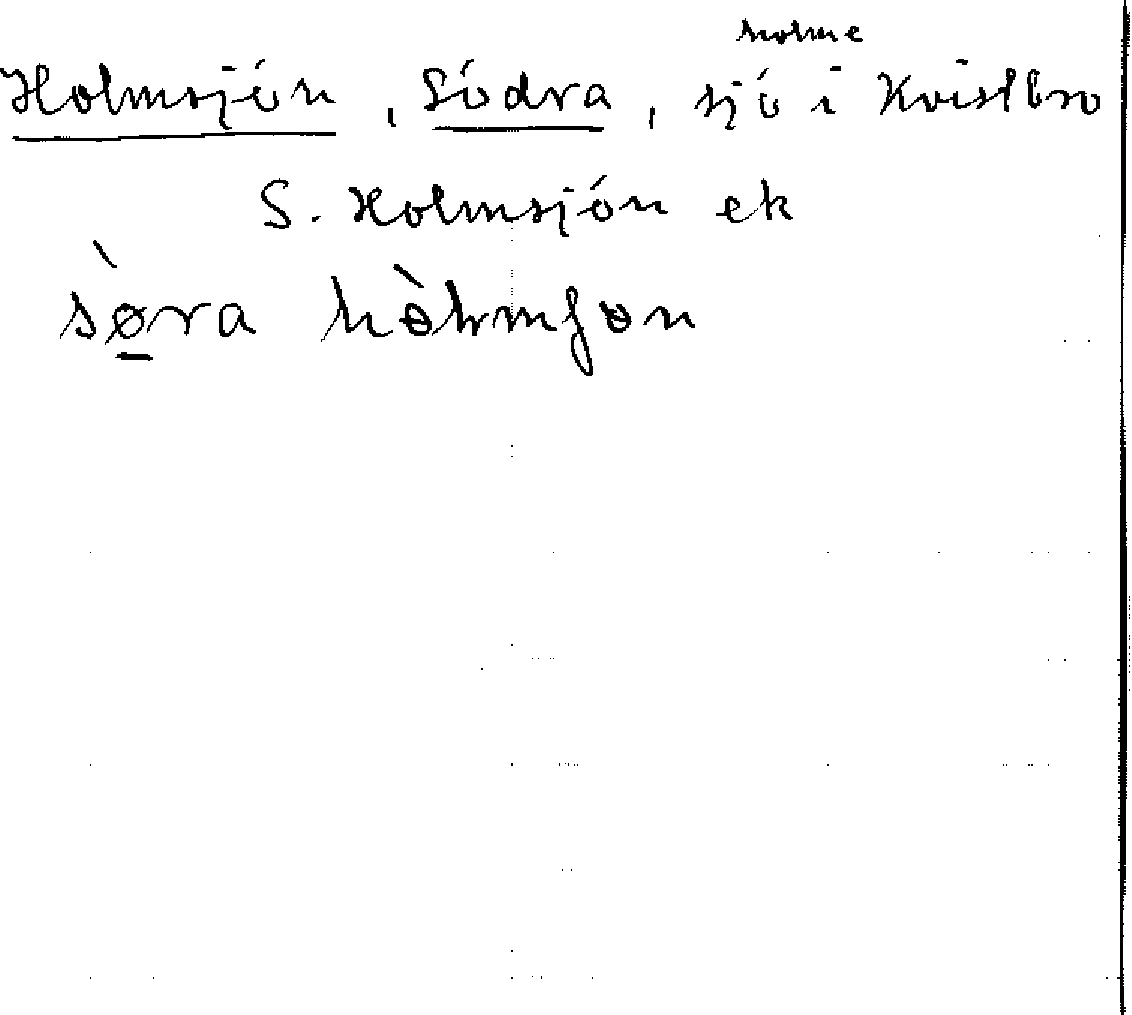 holme
Holmsjön, Södra, sjö i Kvistbro
S. Holmsjön ek
sø̱̀ra hòlmʃɵn